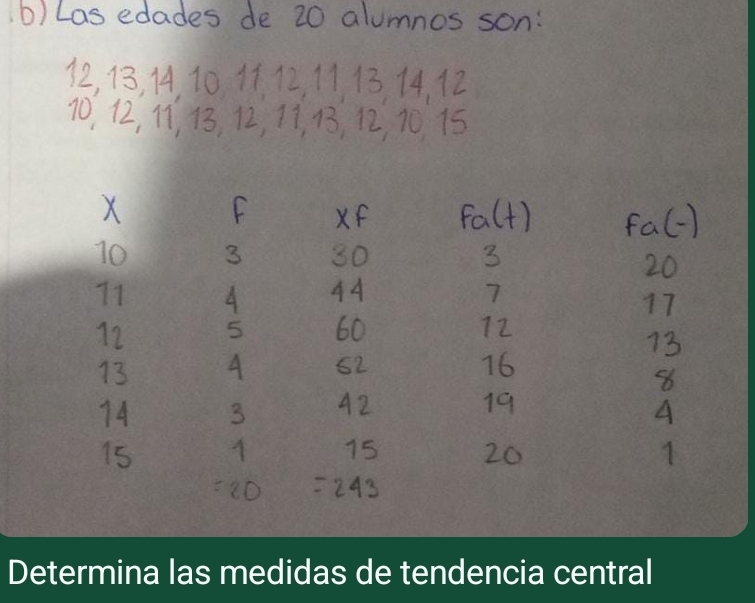 b) Las edades de 20 alumnos son:
12, 13, 14, 10, 11, 12, 11, 13, 14, 12
10, 12, 11, 13, 12, 11, 13, 12, 10, 15
X f xf Fa(+) Fa(-)
10 3 30 3 20
11 4 44 7 17
12 5 60 12 13
13 4 52 16 8
14 3 42 19 4
15 1 15 20 1
=20 =243
Determina las medidas de tendencia central